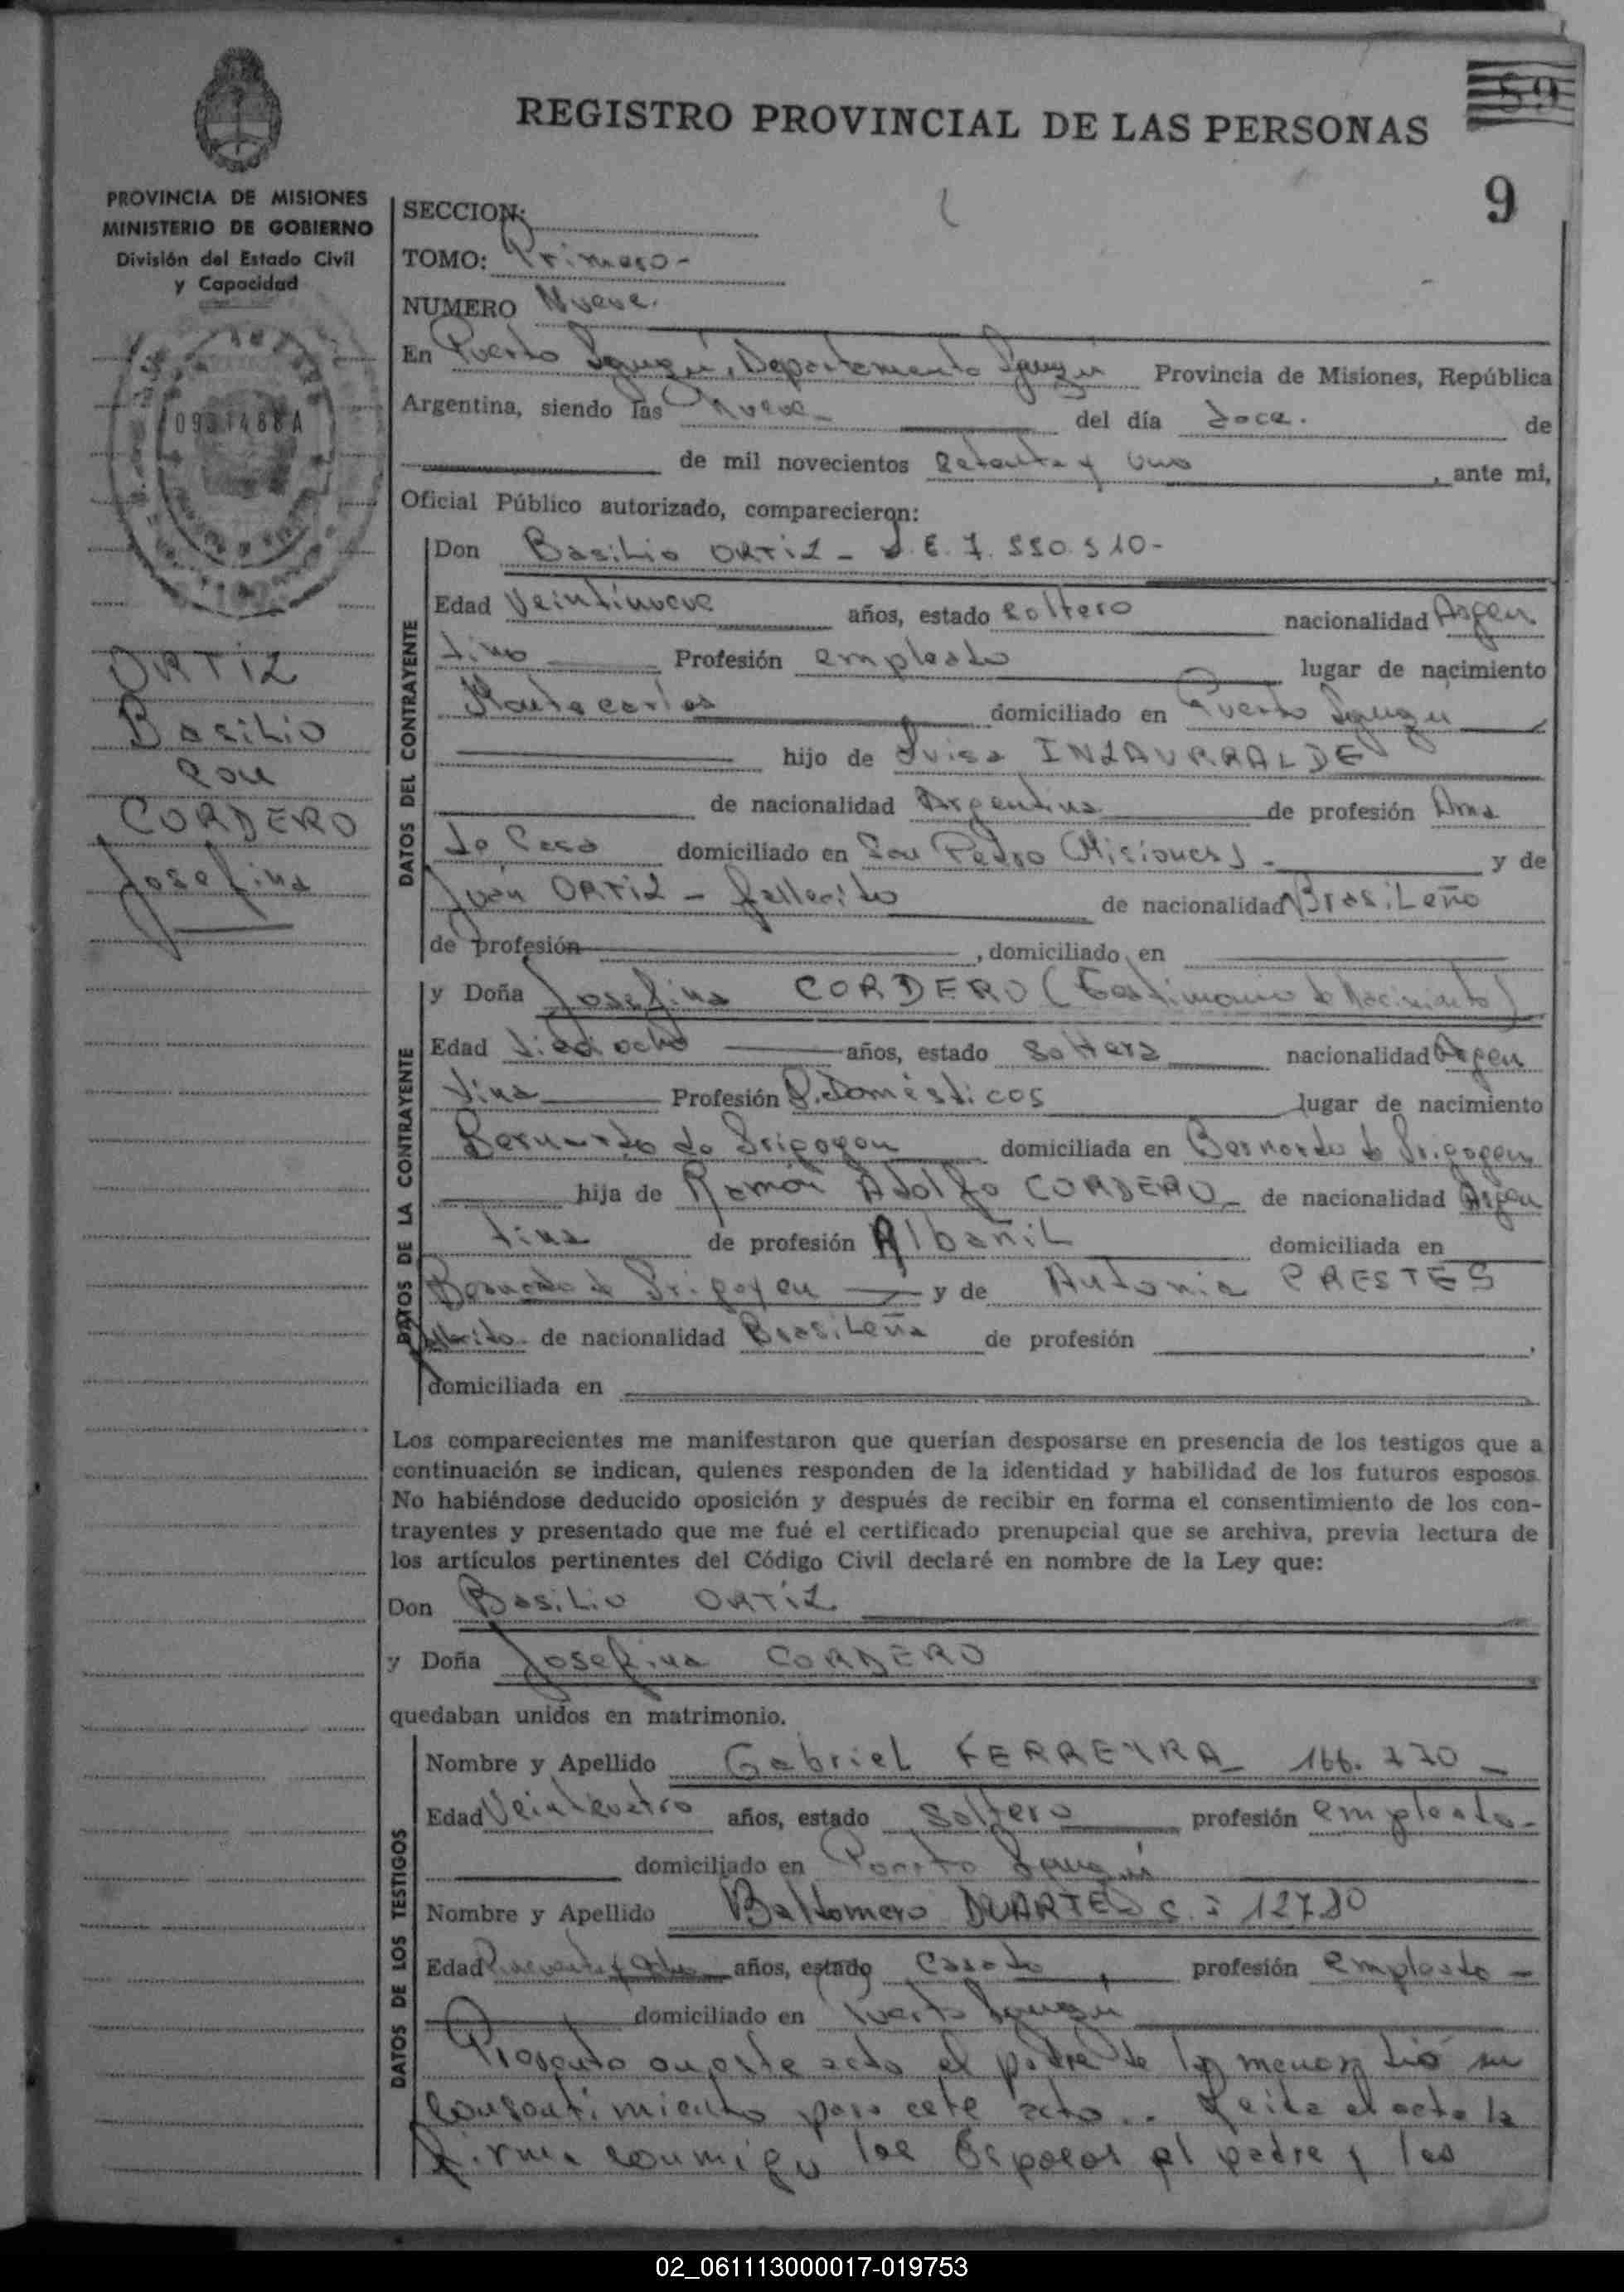 59
REGISTRO PROVINCIAL DE LAS PERSONAS
9
PROVINCIA DE MISIONES
MINISTERIO DE GOBIERNO
División del Estado Civil
y Capacidad
ORTIZ
Basilio
con
CORDERO
Josefina
SECCION:
TOMO: Primero-
NUMERO Nueve.
En Puerto Iguazú, Departamento Iguazú Provincia de Misiones, República
Argentina, siendo las nueve del día doce. de
de mil novecientos setenta y uno, ante mi,
Oficial Público autorizado, comparecieron:
DATOS DEL CONTRAYENTE
Don Basilio ORTIZ - L.E. 7.550.510-
Edad Veintinueve años, estado soltero nacionalidad Argen
tino Profesión empleado lugar de nacimiento
Montecarlos domiciliado en Puerto Iguazu
hijo de Luisa INZAURRALDE
de nacionalidad Argentina de profesión Ama
de Casa domiciliado en San Pedro (Misiones)- y de
Juan ORTIZ - fallecido de nacionalidad Brasileño
de profesión , domiciliado en
DATOS DE LA CONTRAYENTE
y Doña Josefina CORDERO (Testimonio de Nacimiento)
Edad dieciocho años, estado soltera nacionalidad Argen
tina Profesión Q.Domésticos lugar de nacimiento
Bernardo de Irigoyen domiciliada en Bernardo de Irigoyen
hija de Ramón Adolfo CORDERO de nacionalidad Argen
tina de profesión Albañil domiciliada en
Bernardo de Irigoyen y de Antonia PRESTES
fallecida de nacionalidad Brasileña de profesión ,
domiciliada en
Los comparecientes me manifestaron que querían desposarse en presencia de los testigos que a
continuación se indican, quienes responden de la identidad y habilidad de los futuros esposos.
No habiéndose deducido oposición y después de recibir en forma el consentimiento de los con-
trayentes y presentado que me fué el certificado prenupcial que se archiva, previa lectura de
los artículos pertinentes del Código Civil declaré en nombre de la Ley que:
Don Basilio ORTIZ
y Doña Josefina CORDERO
quedaban unidos en matrimonio.
DATOS DE LOS TESTIGOS
Nombre y Apellido Gabriel FERREYRA 166.770
Edad Veinticuatro años, estado soltero profesión empleado-
domiciliado en Puerto Iguazú
Nombre y Apellido Baldomero DUARTE
Edad años, estado casado, profesión empleado-
domiciliado en Puerto Iguazu
Presente en este acto el padre de la menor dió su
consentimiento para este acto.. Leida el acta la
firma conmigo los Esposos el padre y los
02_061113000017-019753